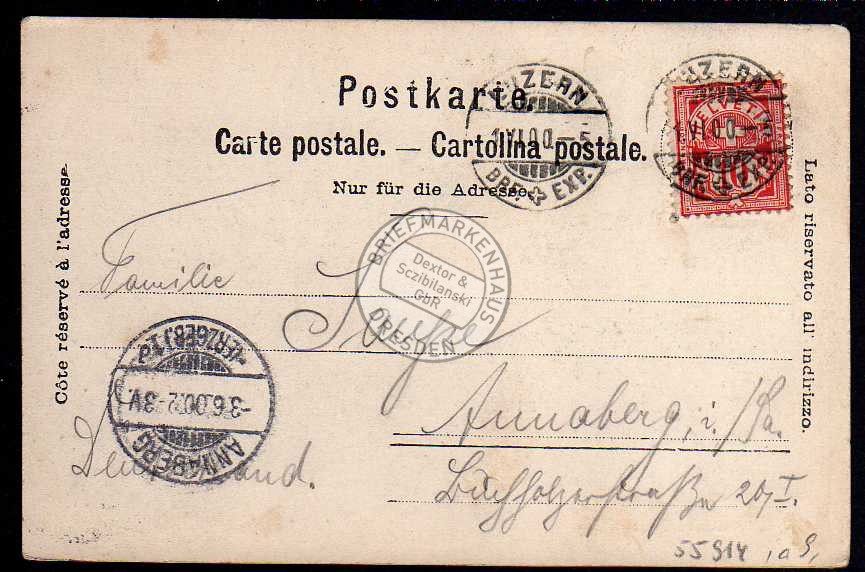 Postkarte.
Carte postale. — Cartolina postale.
Nur für die Adresse.
Côte réservé à l'adresse.
Lato riservato all' indirizzo.
LUZERN
1.VI.00.—5
BRF. EXP.
LUZERN
1.VI.00.—5
BRF. EXP.
HELVETIA
10
BRIEFMARKENHAUS
Dextor &
Sczibilanski
GbR
DRESDEN
Familie
Annaberg i/Sa.
Buchholzerstraße 20, I.
Deutschland.
ANNABERG
-3.6.00.2-3V.
(ERZGEB.) 1.
55914